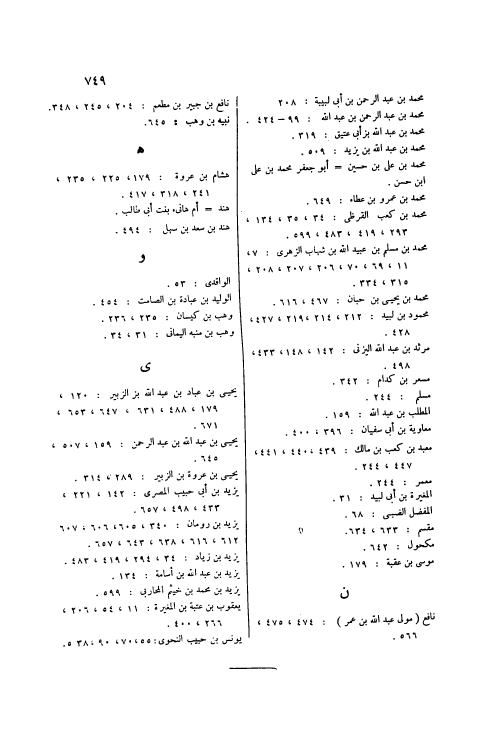 ٧٤٩
محمد بن عبد الرحمن بن أبي لبيبة : ٢٠٨
محمد بن عبد الرحمن بن عبد الله : ٩٩ – ٤٢٤ .
محمد بن عبد الله بز أبي عتيق : ٣١٩ .
محمد بن عبد الله بن يزيد : ٥٠٩ .
محمد بن على بن حسين = أبو جعفر محمد بن على
ابن حسن .
محمد بن عمرو بن عطاء : ٦٤٩ .
محمد بن كعب القرظى : ٣٤ ، ٣٥ ، ١٣٤ ،
٢٩٣ ، ٤١٩ ، ٤٨٣ ، ٥٩٩ .
محمد بن مسلم بن عبيد الله بن شهاب الزهرى : ٧ ،
١١ ، ٦٩ ، ٧٠ ، ٢٠٦ ، ٢٠٧ ، ٢٠٨ ،
٣١٥ ، ٣٣٤ .
محمد بن يحيى بن حبان : ٤٦٧ ، ٦١٦ .
محمود بن لبيد : ٢١٢ ، ٢١٤ ، ٢١٩ ، ٤٢٧ ،
٤٢٨ .
مرثد بن عبد الله اليزنى : ١٤٢ ، ١٤٨ ، ٤٣٣ ،
٤٩٨ .
مسعر بن كدام : ٣٤٢ .
مسلم : ٢٤٤ .
المطلب بن عبد الله : ١٥٩ .
معاوية بن أبي سفيان : ٣٩٦ ، ٤٠٠ .
معبد بن كعب بن مالك : ٤٣٩ ، ٤٤٠ ، ٤٤١ ،
٤٤٧ ، ٢٤٤ .
معمر : ٢٤٤ .
المغيرة بن أبي لبيد : ٣١ .
المفضل الضبى : ٦٨ .
مقسم : ٦٣٣ ، ٦٣٤ .
مكحول : ٦٤٢ .
موسى بن عقبة : ١٧٩ .
ن
نافع ( مولى عبد الله بن عمر ) : ٤٧٤ ، ٤٧٥ ،
٥٦٦ .
نافع بن جبير بن مطعم : ٢٠٤ ، ٢٤٥ ، ٣٤٨ .
نبيه بن وهب : ٦٤٥ .
ه
هشام بن عروة : ١٧٩ ، ٢٢٥ ، ٢٣٥ ،
٢٤١ ، ٣١٨ ، ٤١٧ .
هند = أم هانىء بنت أبي طالب .
هند بن سعد بن سهل : ٤٩٤ .
و
الواقدى : ٥٣ .
الوليد بن عبادة بن الصامت : ٤٥٤ .
وهب بن كيسان : ٢٣٥ ، ٢٣٦ .
وهب بن منبه اليمانى : ٣١ ، ٣٤ .
ى
يحيى بن عباد بن عبد الله بز الزبير : ١٢٠ ،
١٧٩ ، ٤٨٨ ، ٦٣١ ، ٦٤٧ ، ٦٥٣ ،
٦٧١ .
يحيى بن عبد الله بن عبد الرحمن : ١٥٩ ، ٥٠٧ ،
٦٤٥ .
يحيى بن عروة بن الزبير : ٢٨٩ ، ٣١٤ .
يزيد بن أبي حبيب المصرى : ١٤٢ ، ٢٢١ ،
٤٣٣ ، ٤٩٨ ، ٦٥٧ .
يزيد بن رومان : ٣٤٠ ، ٦٠٥ ، ٦٠٦ ، ٦٠٧
٦١٢ ، ٦١٦ ، ٦٣٨ ، ٦٤٣ ، ٦٥٧ .
يزيد بن زياد : ٣٤ ، ٢٩٤ ، ٤١٩ ، ٤٨٣ .
يزيد بن عبد الله بن أسامة : ١٣٤ .
يزيد بن محمد بن خيثم المحاربى : ٥٩٩ .
يعقوب بن عتبة بن المغيرة : ١١ ، ٥٤ ، ٢٠٦ ،
٢٦٦ ، ٤٠٠ .
يونس بن حبيب النحوى : ٥٥ ، ٧٠ ، ٩٠ ، ٥٣٨ .